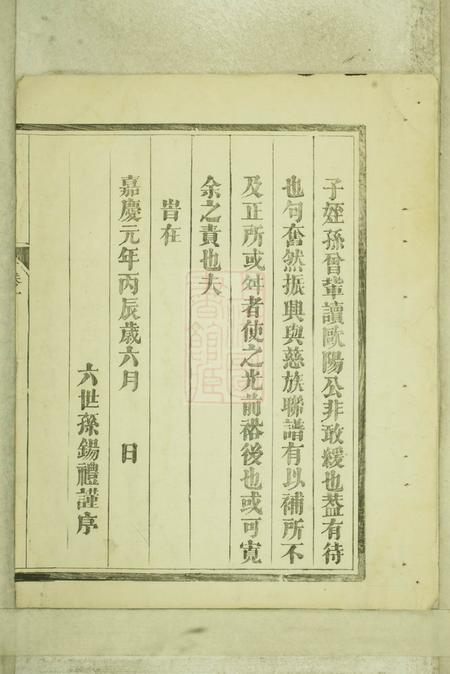 子姪孫曾輩讀歐陽公非敢緩也葢有待
也句奮然振興與慈族聯譜有以補所不
及正所或舛者使之光前裕後也或可寛
余之責也夫
旹在
嘉慶元年丙辰歲六月 日
六世孫錫禮謹序